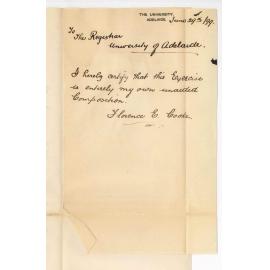 THE UNIVERSITY,
ADELAIDE.
June 29th /99.
To The Registrar
University of Adelaide.
I hereby certify that this Exercise
is entirely my own unaided
Composition.
Florence E. Cooke